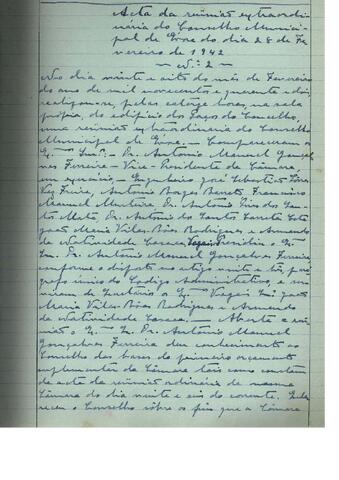 Acta da reunião extraordi-
nária do Conselho Munici-
pal de Évora do dia 28 de Fe-
vereiro de 1942
— N.º 2 —
No dia vinte e oito do mês de Fevereiro
do ano de mil novecentos e quarenta e dois,
realizou-se, pelas catorze horas, na sala
própria, do edifício dos Paços do Concelho,
uma reunião extraordinária do Conselho
Municipal de Évora. — Compareceram os
Ex.mos Snrs. Dr. António Manuel Gonçal-
ves Ferreira — Vice-Presidente da Câmara
em exercício — Engenheiro José Sebastião
António Borges Barreto, Francisco
Manuel Dr. António dos San-
tos Dr. António dos Santos
Maria Vilas-Boas Rodrigues e Armando
da Natividade Presidiu o Ex.
Sr. Dr. António Manuel Gonçalves Ferreira,
conforme o disposto no artigo vinte e três, pará-
grafo único do Codigo Administrativo, e ser-
viram de Secretários os Ex. Vogais Snrs.
Maria Vilas-Boas Rodrigues e Armando
da Natividade — Aberta a reu-
nião o Ex. Sr. Dr. António Manuel
Gonçalves Ferreira deu conhecimento ao
Conselho das bases do primeiro orçamento
suplementar da Câmara tais como constam
da acta da reunião ordinária da mesma
Câmara do dia vinte e seis do corrente.
receu o Conselho sôbre os fins que a Câmara